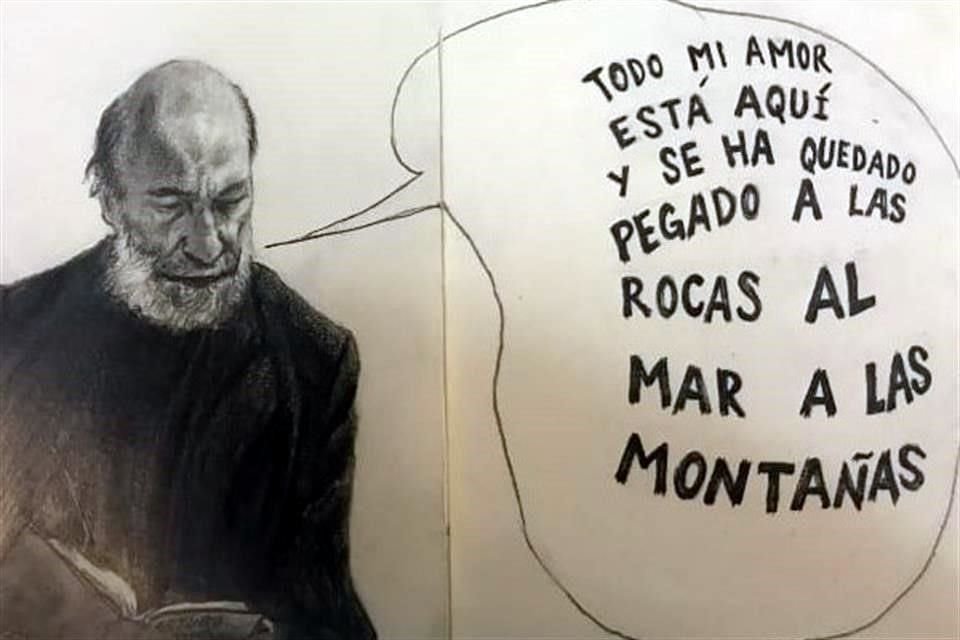 TODO MI AMOR
ESTÁ AQUÍ
Y SE HA QUEDADO
PEGADO A LAS
ROCAS AL
MAR A LAS
MONTAÑAS